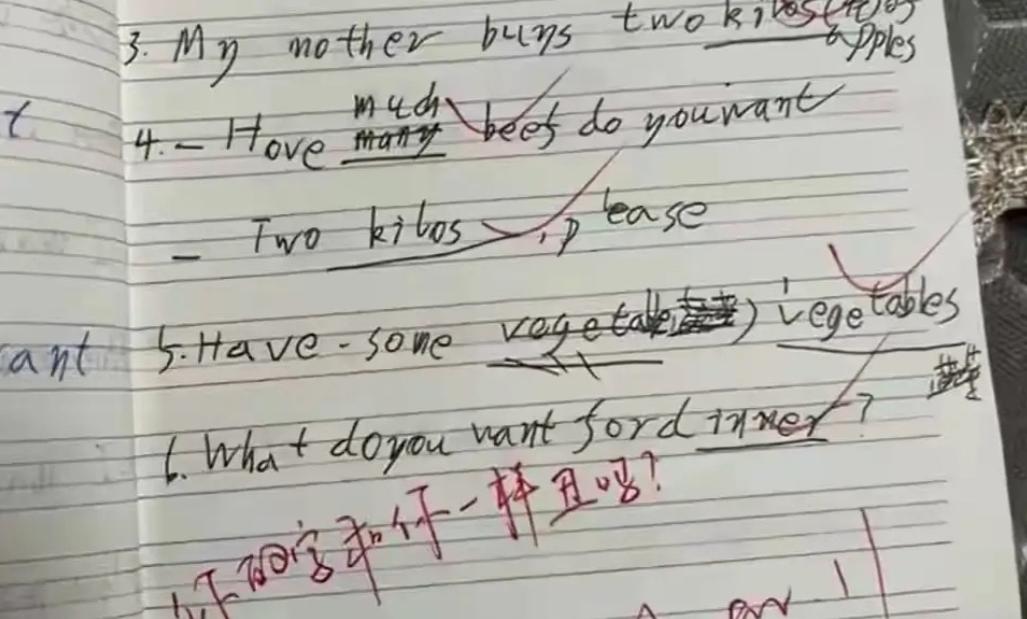 3. My mother buys two kilos of
apples
t
much
4. - Hove many beef do you want
- Two kilos, please
5. Have - some vegetable) vegetables
ant
6. What do you want for dinner?
和你一样丑吗?